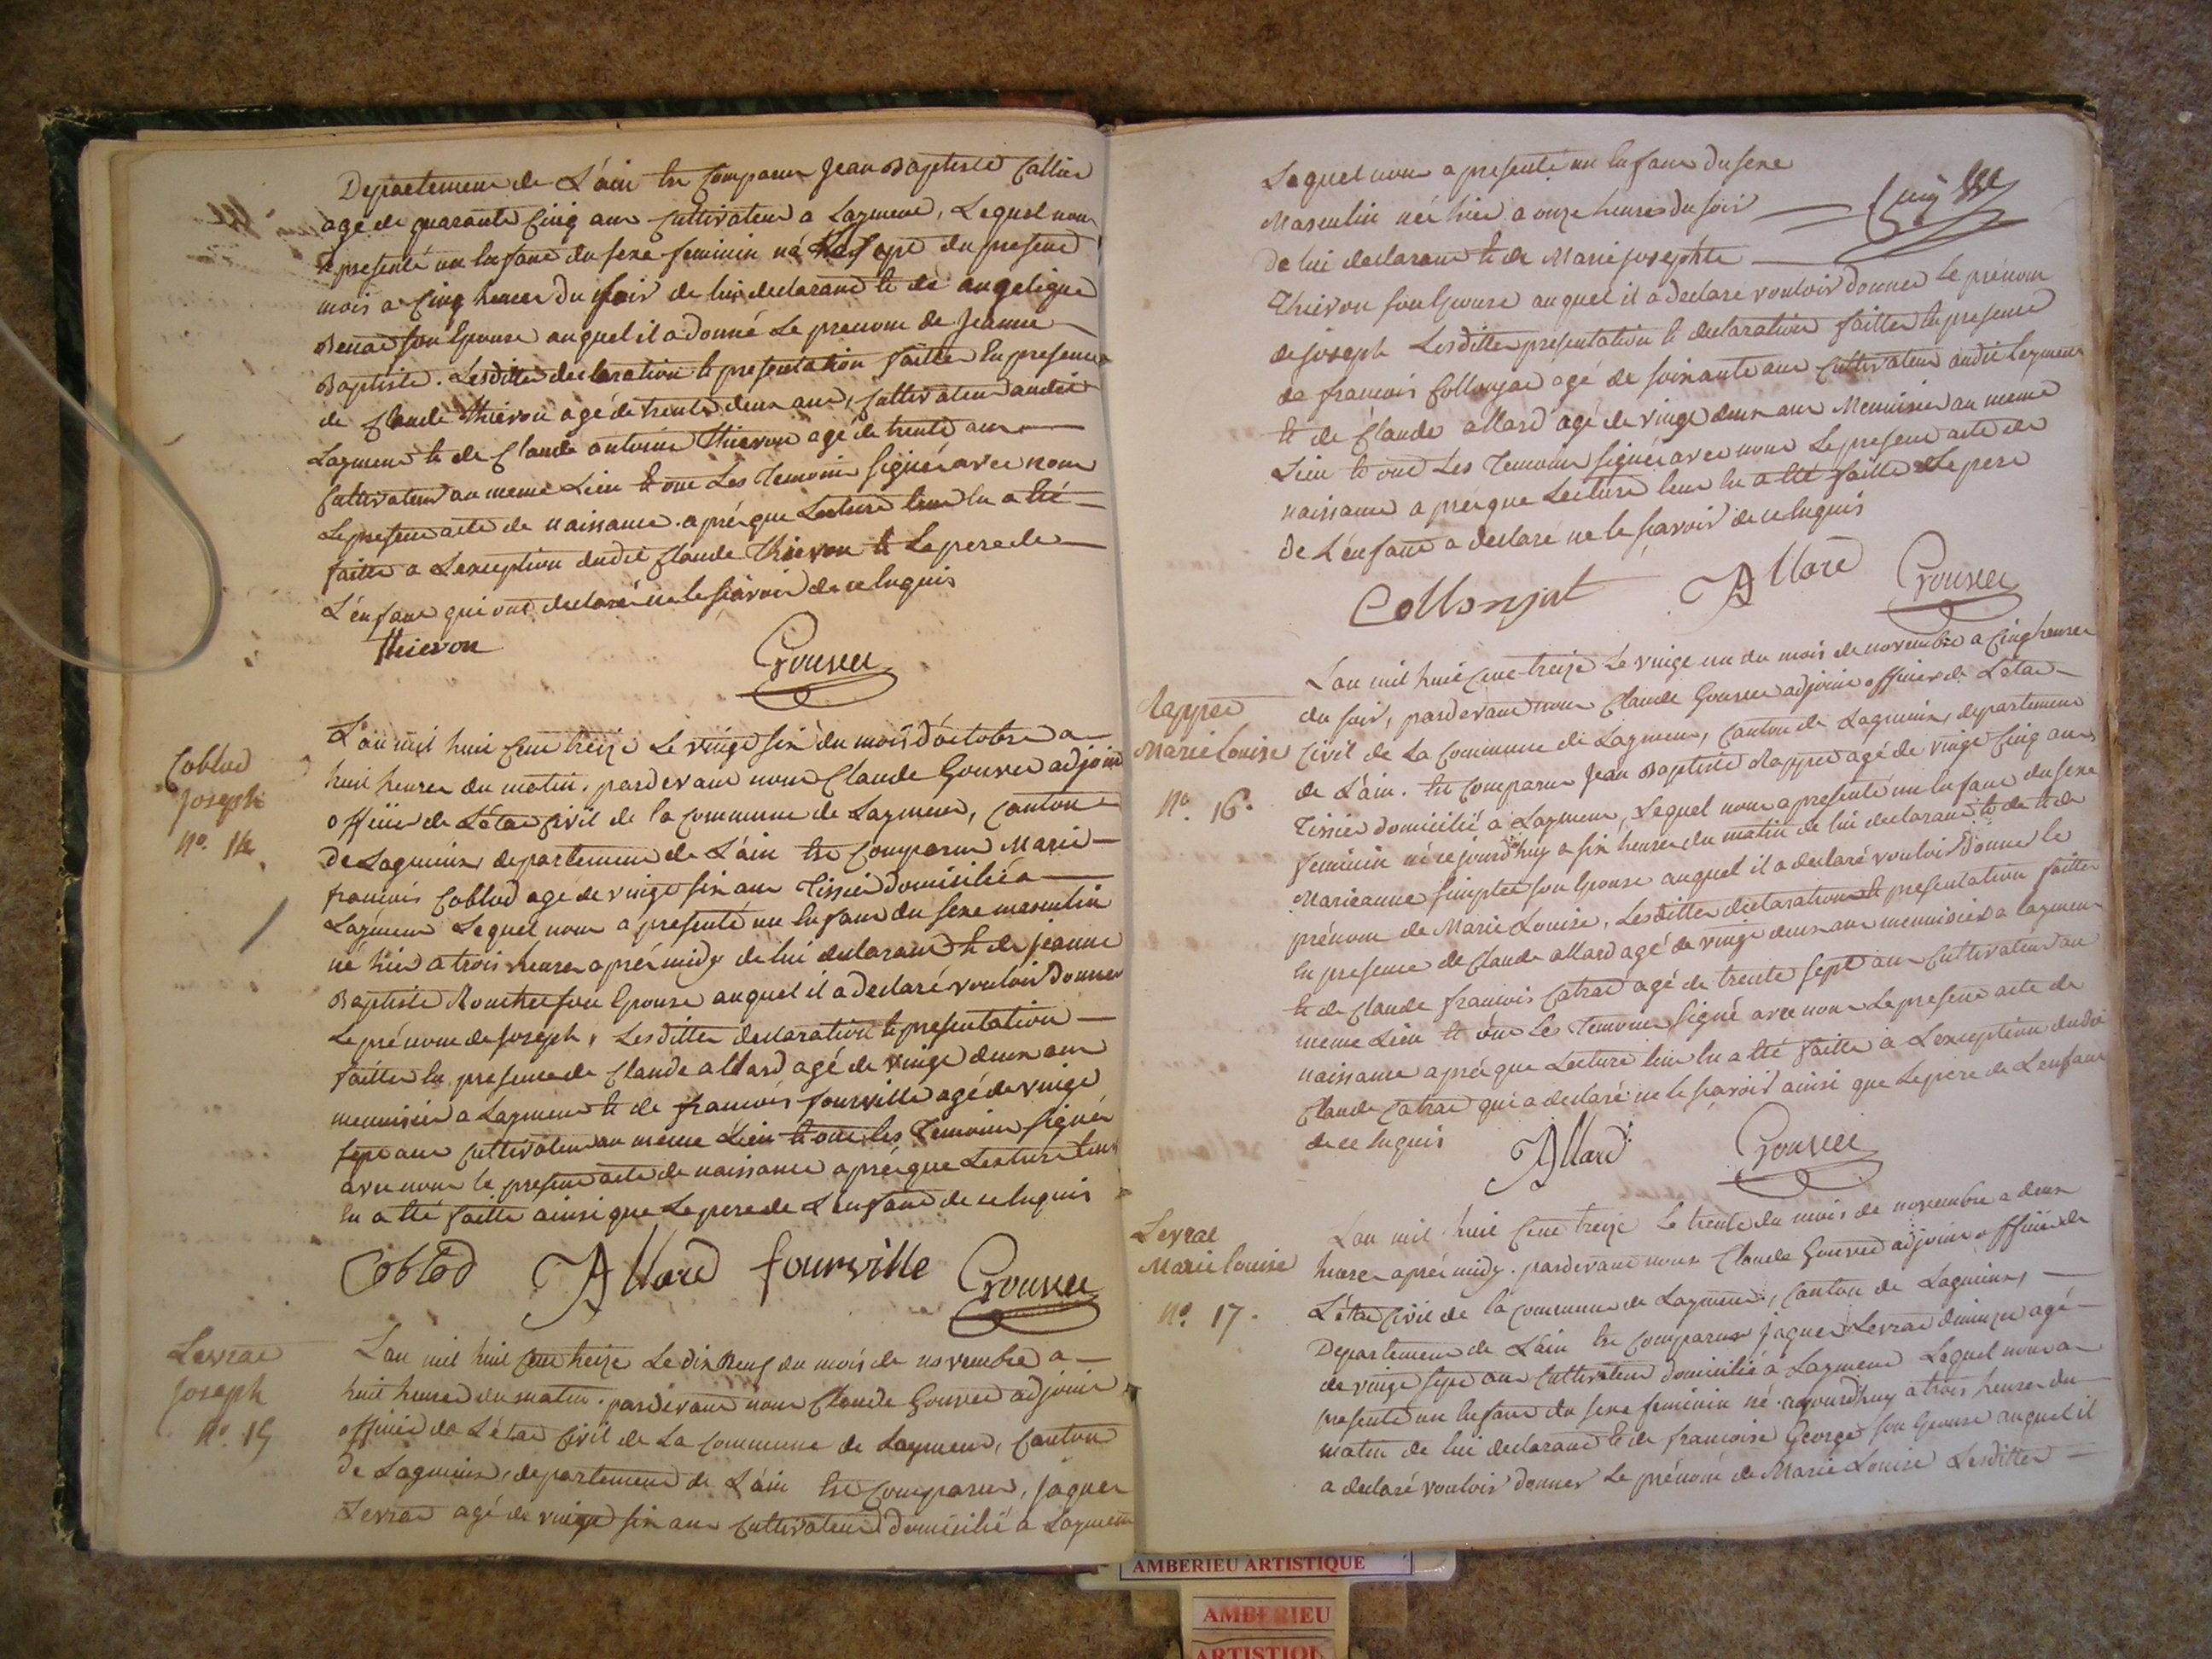 Departement de L'ain est Comparu Jean Baptiste Callin
agé de quarante Cinq ans Cultivateur a Lagmeux, Lequel nous
a presenté un Enfant du sexe feminin né Le sept du present
mois a Cinq heures du soir de lui declarant et de angelique
son Epouse auquel il a donné Le prenom de Jeanne
Baptiste. Lesdittes declaration et presentation faittes En presence
de Claude Thievon agé de trente deux ans, Cultivateur audit
Lagmeux et de Claude antoine Thievon agé de trente ans
Cultivateur au meme Lieu et ont Les Temoins signés avec nous
Le present acte de naissance. aprés que Lecture leur En a Eté
faitte a L'exception dudit Claude Thievon et Le pere de
L'enfant qui ont declaré ne le sçavoir de ce Enquis
thievon Gouvee
Coblod
Joseph
No. 14
L'an mil huit Cent treize Le vingt six du mois d'octobre a
huit heures du matin. pardevant nous Claude Gouvee adjoint
officier de L'état Civil de la Commune de Lagmeux, Canton
de Lagnieux, departement de L'ain Est Comparu Marie
françois Coblod agé de vingt six ans Tissier domicilié a
Lagmeux Lequel nous a presenté un Enfant du sexe masculin
né hier a trois heures aprés midy de lui declarant et de Jeanne
Baptiste son Epouse auquel il a declaré vouloir donner
Le prénom de Joseph, Lesdittes declaration et presentation
faittes En presence de Claude allard agé de vingt deux ans
menuisier a Lagmeux et de françois fourville agé de vingt
sept ans Cultivateur au meme Lieu et ont les Temoins signés
avec nous le present acte de naissance aprés que Lecture leur
En a Eté faitte ainsi que Le pere de L'enfant de ce Enquis
Coblod Allard fourville Gouvee
Levrat
Joseph
No. 15
L'an mil huit Cent treize Le dix neuf du mois de novembre a
huit heures du matin. pardevant nous Claude Gouvee adjoint
officier de L'état Civil de La Commune de Lagmeux, Canton
de Lagnieux, departement de L'ain Est Comparu, Jaques
Levrat agé de vingt six ans Cultivateur domicilié a Lagmeux
Lequel nous a presenté un Enfant du sexe
Masculin né hier a onze heures du soir
de lui declarant et de Marie Josephte
Thievon son Epouse auquel il a declaré vouloir donner le prénom
de Joseph Lesdittes presentation et declaration faittes En presence
de françois Collonjat agé de soixante ans Cultivateur audit Lagmeux
et de Claude allard agé de vingt deux ans Menuisier au meme
Lieu et ont Les Temoins signés avec nous Le present acte de
naissance aprés que Lecture leur En a Eté faitte Le pere
de L'enfant a declaré ne le sçavoir de ce Enquis
Collonjat Allard Gouvee
Rappet
Marie Louise
No. 16.
L'an mil huit Cent treize Le vingt un du mois de novembre a Cinq heures
du soir, pardevant nous Claude Gouvee adjoint officier de L'état
Civil de La Commune de Lagmeux, Canton de Lagnieux, departement
de L'ain. Est Comparu Jean Baptiste Rappet agé de vingt Cinq ans
Tissier domicilié a Lagmeux, Lequel nous a presenté un Enfant du sexe
feminin né cejourd'huy a six heures du matin de lui declarant et de
Marieanne son Epouse auquel il a declaré vouloir donner le
prénom de Marie Louise, Lesdittes declaration et presentation faittes
En presence de Claude allard agé de vingt deux ans menuisier a Lagmeux
et de Claude francois Catrat agé de trente sept ans Cultivateur au
meme Lieu et ont Les Temoins signé avec nous Le present acte de
naissance aprés que Lecture leur En a Eté faitte a L'exception dudit
Claude Catrat qui a declaré ne le sçavoir ainsi que Le pere de L'enfant
de ce Enquis Allard Gouvee
Levrat
Marie Louise
No. 17.
L'an mil huit Cent treize Le trente du mois de novembre a deux
heures aprés midy. pardevant nous Claude Gouvee adjoint officier de
L'état Civil de la Commune de Lagmeux, Canton de Lagnieux,
Departement de L'ain Est Comparu Jaques Levrat agé
de vingt sept ans Cultivateur domicilié a Lagmeux Lequel nous a
presenté un Enfant du sexe feminin né aujourd'huy a trois heures du
matin de lui declarant et de francoise George son Epouse auquel il
a declaré vouloir donner Le prénom de Marie Louise Lesdittes
AMBERIEU ARTISTIQUE
AMBERIEU
ARTISTIQU